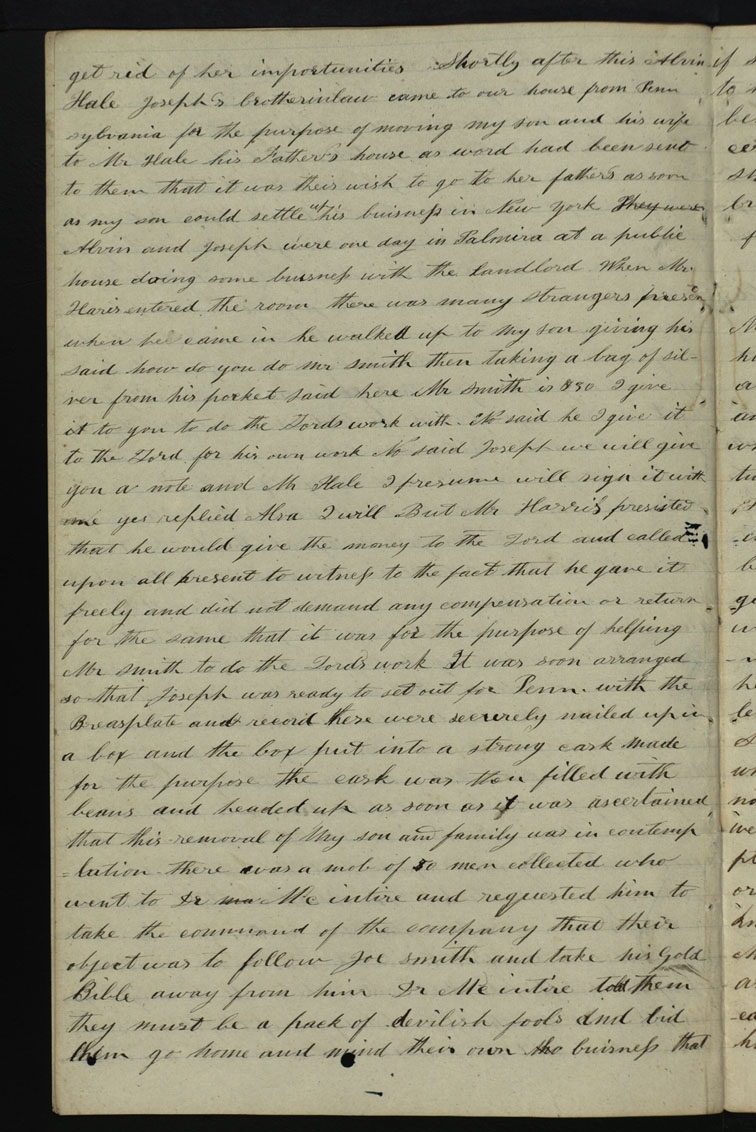 get rid of her importunities Shortly after this Alvin
Hale Josephs brotherinlaw came to our house from Penn
sylvania for the purpose of moving my son and his wife
to Mr Hale his Father's house as word had been sent
to them that it was their wish to go to her fathers as soon
as my son could settle up his buisness in New York They were
Alvin and Joseph were one day in Palmira at a public
house doing some buisness with the Landlord When Mr.
Haris entered the room there was many strangers present
when he came in he walked up to my son giving his
said how do you do mr smith then taking a bag of sil-
ver from his pocket said here Mr smith is $50 I give
it to you to do the Lords work with. No said he I give it
to the Lord for his own work No said Joseph we will give
you a note and Mr Hale I presume will sign it with
me yes replied Alva I will But Mr Harris presisted
that he would give the money to the Lord and called
upon all present to witness to the fact that he gave it
freely and did not demand any compensation or return
for the same that it was for the purpose of helping
Mr smith to do the Lords work It was soon arranged
so that Joseph was ready to set out for Penn. with the
Breasplate and record these were securely nailed up in
a box and the box put into a strong cask made
for the purpose the cask was then filled with
beans and headed up as soon as it was ascertained
that this removal of My son and family was in contemp
=lation there was a mob of 50 men collected who
went to Dr Mc intire and requested him to
take the command of the company that their
object was to follow Joe smith and take his Gold
Bible away from him Dr Mc intire told them
they must be a pack of devilish fools and bid
them go home and mind their own buisness that